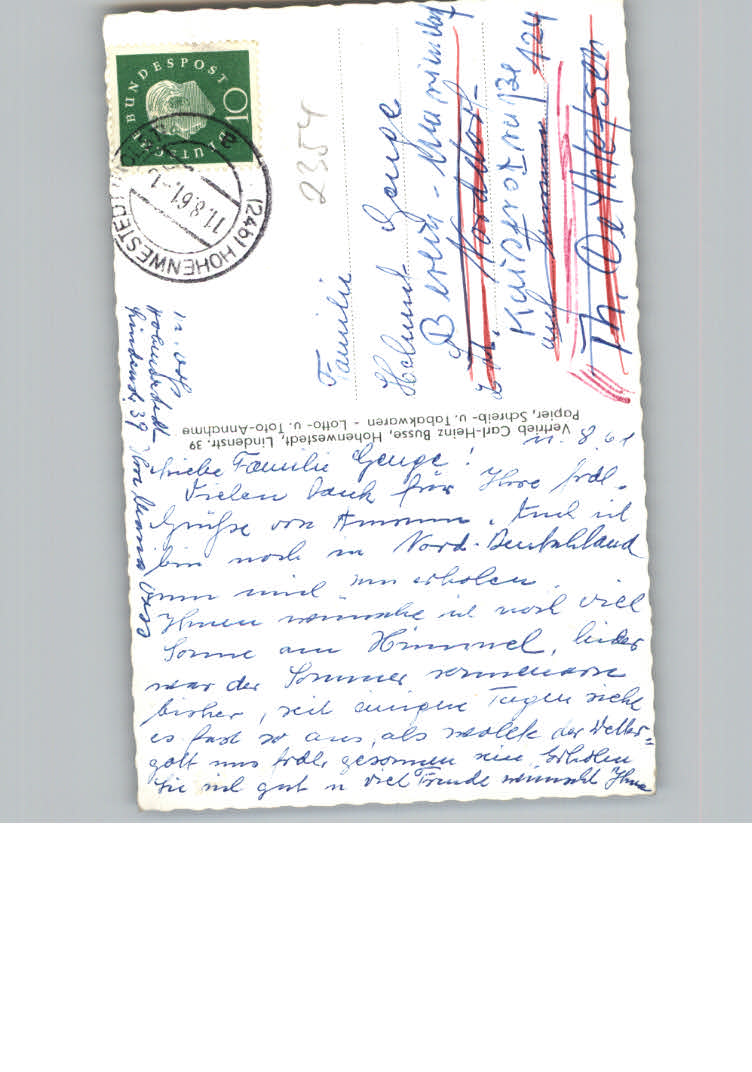 DEUTSCHE BUNDESPOST
10
(24b) HOHENWESTEDT
11.8.61.-1
2354
Familie
Helmut Genge
Berlin - Mariendorf
Norddorf
Kaiserstraße 124
auf Amrum
Th. Dethlefsen
Vertrieb Carl-Heinz Busse, Hohenwestedt, Lindenstr. 39
Papier, Schreib- u. Tabakwaren - Lotto- u. Toto-Annahme
Hohenwestedt
Lindenstr. 39
11. 8. 61
Liebe Familie Genge!
Vielen Dank für Ihre frdl.
Grüße von Amrum. Auch ich
bin noch in Nord-Deutschland
um mich zu erholen.
Ihnen wünsche ich noch viel
Sonne am Himmel, leider
war der Sommer
bisher, seit einigen Tagen sieht
es fast so aus, als wollte der Wetter=
gott uns frdl. gesonnen sein. Erholen
Sie sich gut u viel Freude wünscht Ihnen